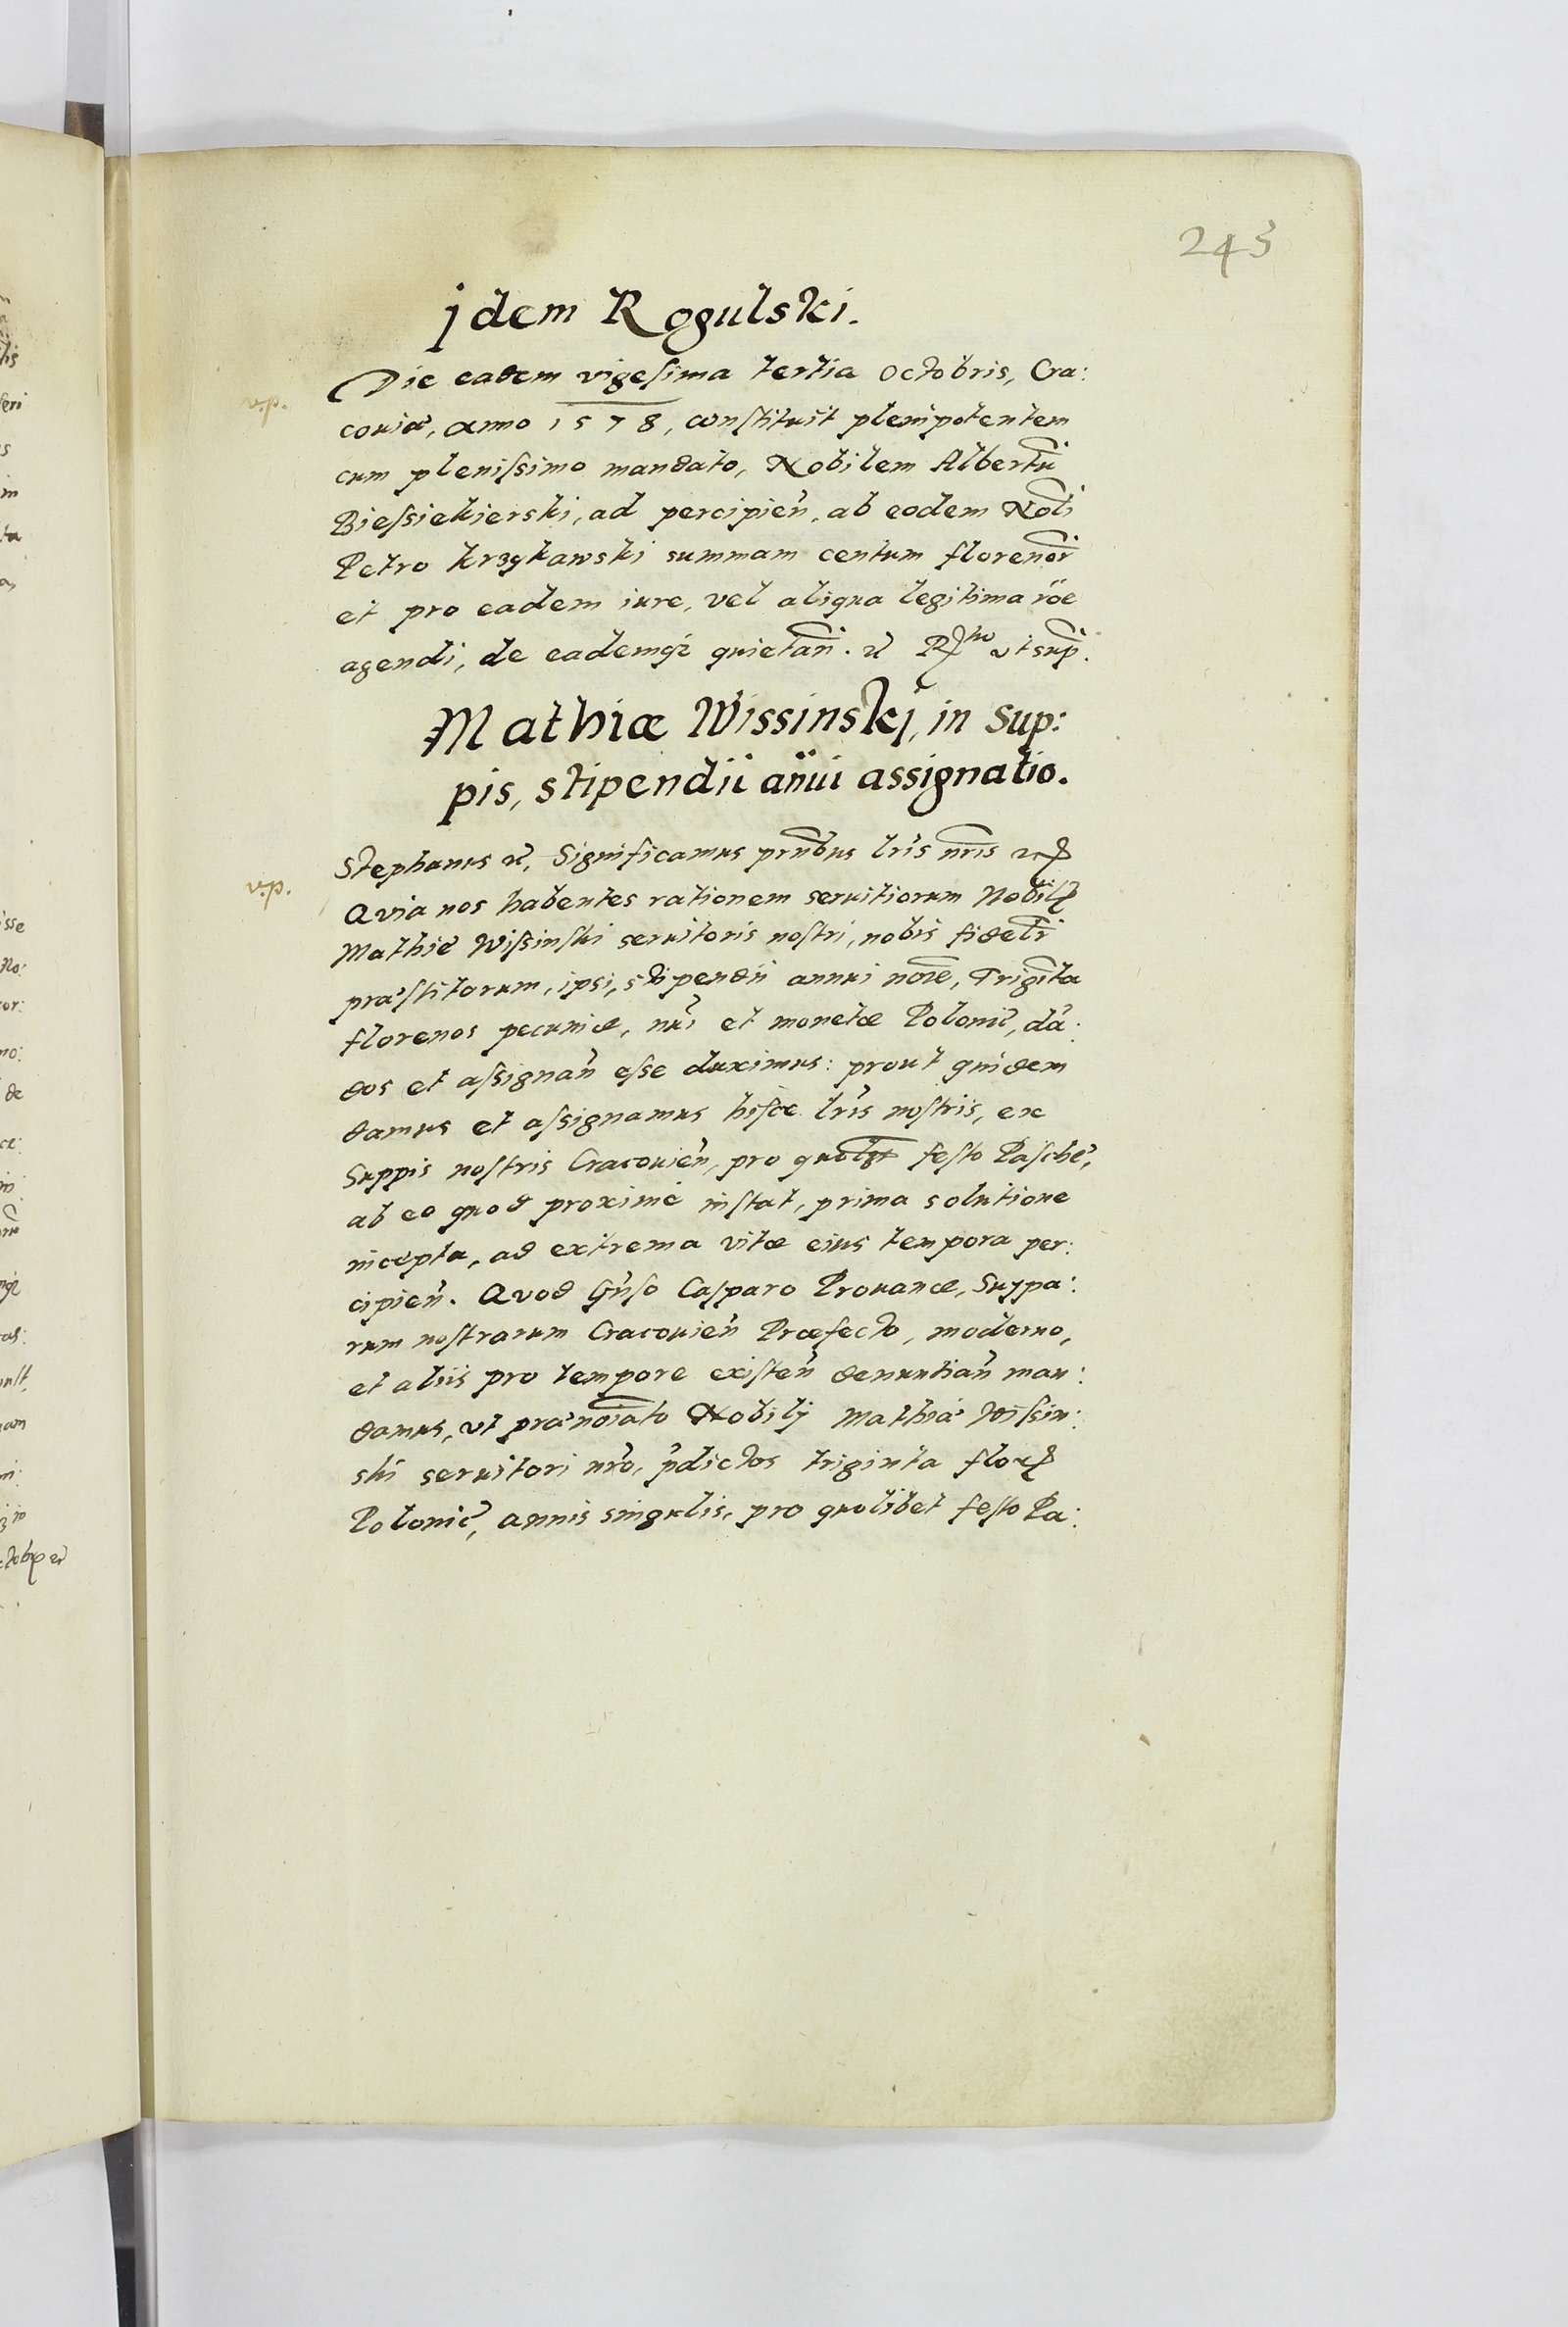 243
Jdem Rogulski.
Die eadem vigesima tertia Octobris, Cra:
v.p.
couiæ, anno 1578, constituit plenipotentem
cum plenissimo mandato, Nobilem Albertũ
Biessiekierski, ad percipien̄, ab eodem Nobli
Petro Krzykawski summam centum florenor̃
et pro eadem iure, vel aliqua legitima rōe
agendi, de eademq; quietan̄. et utsup̃.
Mathiæ Wissinskj, in Sup:
pis, stipendii añui assignatio.
Stephanus et, Significamus pñtibus lris nris
v.p.
Qvia nos habentes rationem seruitiorum Nobil
Mathie Wissinski seruitoris nostri, nobis fidelr̃
præstitorum, ipsi, stipendii annui noīe, Trigĩta
florenos pecuniæ, nũi et monetæ Polonic̃, dã:
dos et assignan̄ esse duximus: prout quidem
damus et assignamus hisce lr̃is nostris, ex
Suppis nostris Cracouien̄, pro quolibet festo Pasche,
ab eo quod proximè instat, prima solutione
incepta, ad extrema vitæ eius tempora per:
cipien̄. Qvod Gñso Casparo Prouanæ, Suppa:
rum nostrarum Cracouien̄ Præfecto, moderno,
et aliis pro tempore existen̄ denuntian̄ man:
damus, vt prænoīato Nobilj Mathiæ Wissin:
ski seruitori nr̃o, p̃dictos triginta flor
Polonic̃, annis singulis, pro quolibet festo Pa: